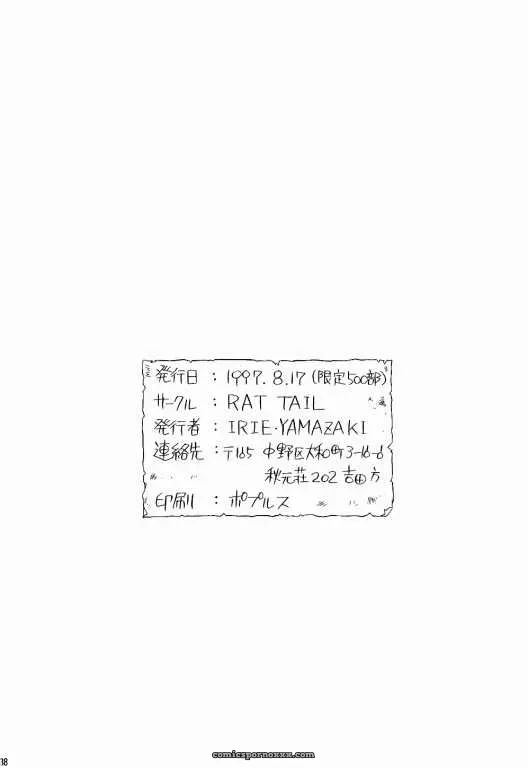 発行日 : 1997. 8.17 (限定500部)
サークル : RAT TAIL
発行者 : IRIE・YAMAZAKI
連絡先 : 〒165 中野区大和町3-16-6
秋元荘202 吉田方
印刷 : ポプルス
18
comicspornoxxx.com